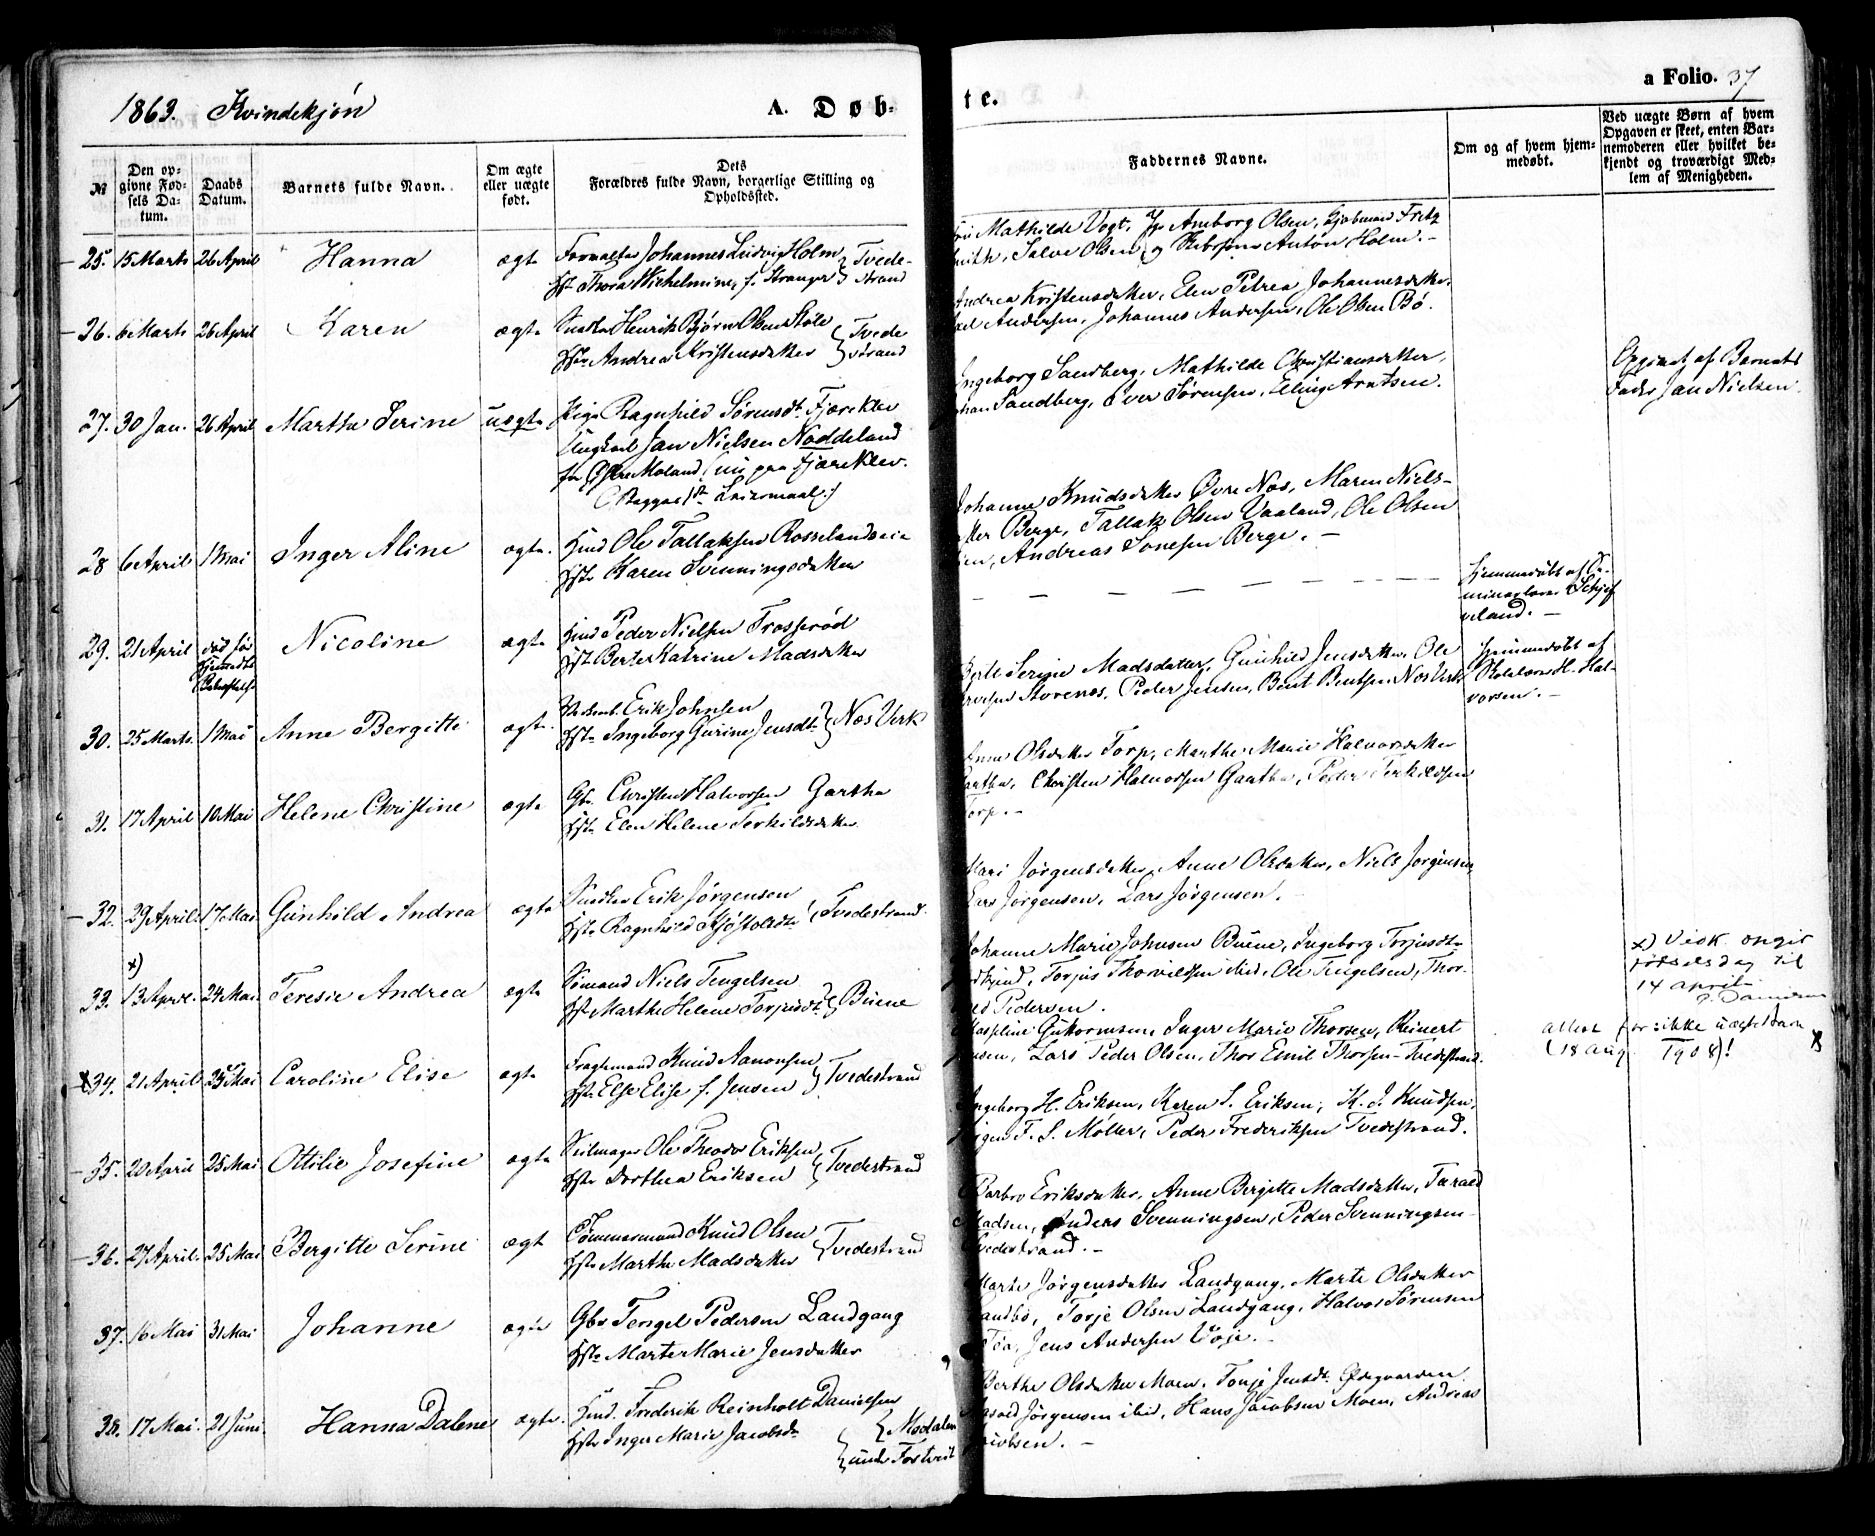 1863. Kvindekjøn
A. Døb-
te.
a Folio. 37
№
Den op-
givne Fød-
sels Da-
tum.
Daabs
Datum.
Barnets fulde Navn.
Om ægte
eller uægte
født.
Dets
Forældres fulde Navn, borgerlige Stilling og
Opholdssted.
Faddernes Navne.
Om og af hvem hjem-
medøbt.
Ved uægte Børn af hvem
Opgaven er skeet, enten Bar-
nemoderen eller hvilket be-
kjendt og troværdigt Med-
lem af Menigheden.
25. 15 Marts 26 April Hanna ægte
Johannes Ludvig Holm
Thora Wilhelmine f. Stranger
Tvede-
strand
Mathilde Vogt, Amborg Olsen, Fritz
Salve Olsen og Anton Holm.
26. 6 Marts 26 April Karen ægte
Henrik Bjørn Olsen
Andrea Kristensdatter
Tvede
strand
Andrea Kristensdatter, Elen Petrea Johannesdatter,
Andersen, Johannes Andersen, Ole Olsen Bø.
27. 30 Jan. 26 April Marthe Serine uægte
Pige Ragnhild Sørensdt. Fjæreklev
Ungkarl Jan Nielsen Noddeland
fra Østre Moland (nu paa Fjæreklev.
(Begges 1ste Leiermaal.)
Ingeborg Sandberg, Mathilde Christiansdatter,
Johan Sandberg, Iver Sørensen, Elling Arntsen.
Opgivet af Barnets
Fader Jan Nielsen.
28 6 April 1 Mai Inger Aline ægte.
Husmd Ole Tallaksen Rosselandseie
Hstr Karen Svenningsdatter
Johanne Knudsdatter Øvre Næs, Maren Niels-
datter Berge, Tallak Olsen Vaaland, Ole Olsen
Andreas Berge.
29. 21 April død før Nicoline ægte
Peder Nielsen Trosserød
Hst Berte Katrine Madsdatter
Hjemmedøbt af
29. 
30. 25 Marts 1 Mai Anne Bergitte ægte
Erik Johnsen
Hstr Ingeborg Gurine Jensdtr
Næs Verk
Berte Serine Madsdatter, Gunhild Jensdatter, Ole
Peder Jensen, Bent Bentsen Næs Verk
Hjemmedøbt af
Skolelærer H. Hal-
vorsen.
31. 17 April 10 Mai Helene Christine ægte
Gbr. Christen Halvorsen Gartha
Hstr Elen Helene Terkildsdatter
Anne Olsdatter Torp, Marthe Marie Halvorsdatter
Gartha, Christen Halvorsen Gartha, Peder Terkildsen
Torp.
32. 29 April 17 Mai Gunhild Andrea ægte
Erik Jørgensen
Hstr Ragnhild
Tvedestrand.
Mari Jørgensdatter, Anne Olsdatter, Niels Jørgensen,
Lars Jørgensen, Lars Jørgensen.
x)
33. 13 April 24 Mai Teresie Andrea ægte
Sømand Niels Tengelsen
Hstr Marthe Helene Torjusdtr
Buene
Johanne Marie Johnsen Buene, Ingeborg Torjusdtr
Torjus Thorvildsen ibid, Ole Tengelsen, Thor-
Pedersen.
x) Vedk. angir
fødselsdag til
14 april
x 34. 21 April 25 Mai Caroline Elise ægte
Fragtemand Knud Aanonsen
Hstr Else Elise f. Jensen
Tvedestrand
Gutormsen, Inger Marie Thorsen, Reinert
Jensen, Lars Peder Olsen, Thor Emil Thorsen Tvedestrand.
attest for: ikke uægte barn
(18 aug. 1908)! x
35. 20 April 25 Mai Ottilie Josefine ægte
Seilmager Ole Theodor Eriksen
Hstr Dorthea Eriksen
Tvedestrand
Ingeborg H. Eriksen, Karen S. Eriksen, K. J. Knudsen,
F. S. Møller, Peder Frederiksen Tvedestrand.
36. 27 April 25 Mai Bergitte Serine ægt
Tømmermand Knud Olsen
Hstr Marthe Madsdatter
Tvedestrand
Barbro Eriksdatter, Anne Bergitte Madsdatter, Tarald
Madsen, Anders Svenningsen, Peder Svenningsen
Tvedestrand.
37. 16 Mai 31 Mai Johanne ægte
Gbr Tengel Pedersen Landgang
Hstr Marte Marie Jensdatter
Marte Jørgensdatter Landgang, Marte Olsdatter
Torje Olsen Landgang, Halvor Sørensen
Jens Andersen Voje.
38. 17 Mai 21 Juni Hanna Dalene ægte.
Husmd. Frederik Reinholt Danielsen
Hstr Inger Marie Jacobsdr
Modalen
under Fostveit
Berthe Olsdatter Moen, Tonje Jensdt. Ødegaarden
Jørgensen ibid, Hans Jacobsen Moen, Andreas
Jacobsen.